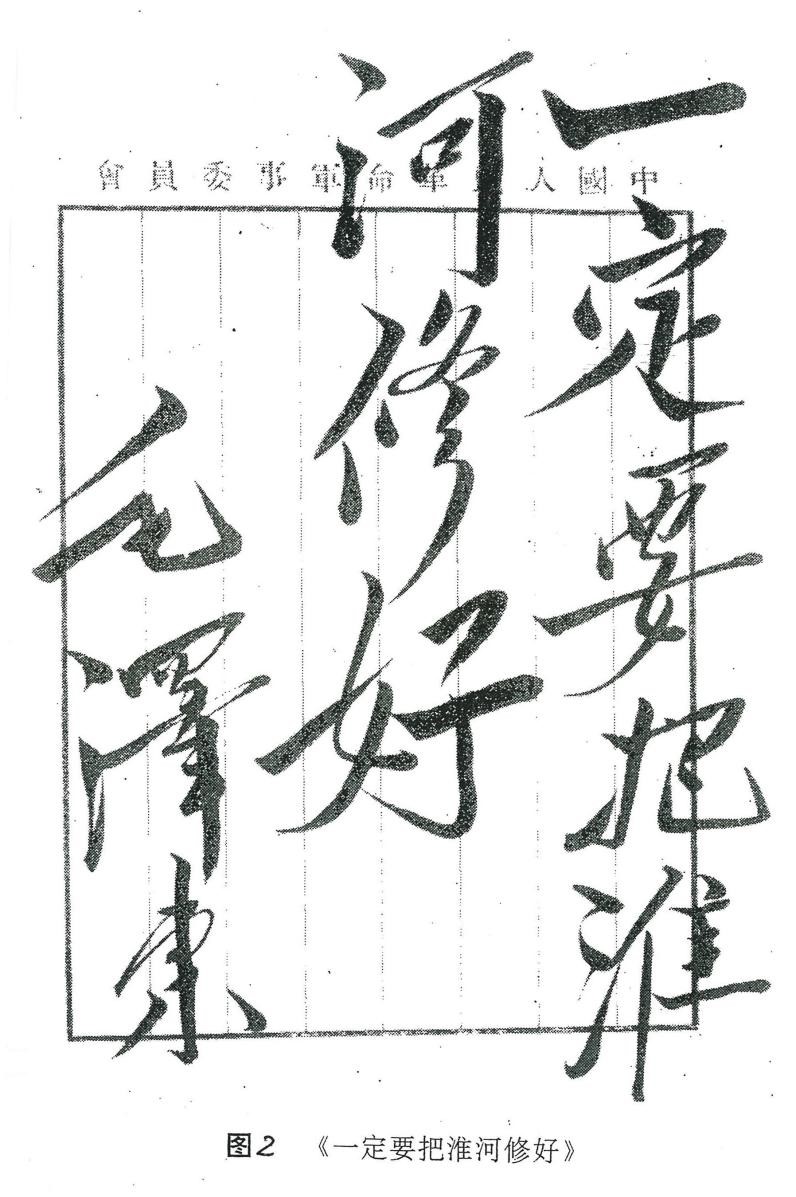 中國人民革命軍事委員會
一定要把淮
河修好
毛澤東
图2 《一定要把淮河修好》